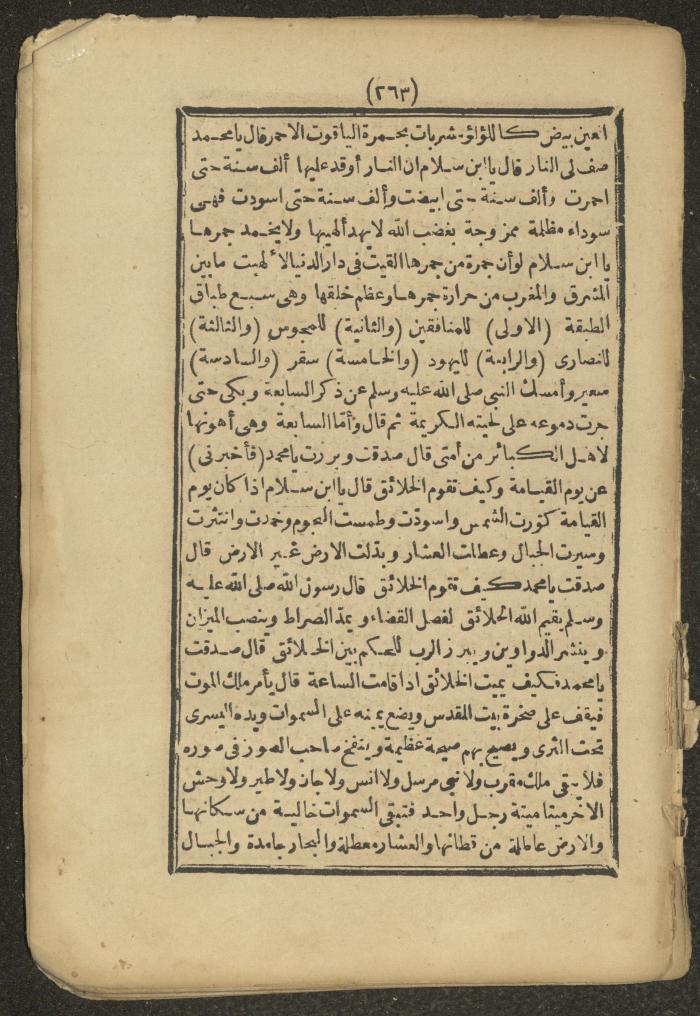 (٢٦٣)
العين بيض كاللؤلؤ مشربات بحمرة الياقوت الاحمر قال يا محمد
صف لى النار قال يا ابن سلام ان النار أوقد عليها ألف سنة حتى
احمرت وألف سنة حتى ابيضت وألف سنة حتى اسودت فهى
سوداء مظلمة ممزوجة بغضب الله لا يهدأ لهيبها ولا يخمد جمرها
يا ابن سلام لو أن جمرة من جمرها ألقيت فى دار الدنيا لألهبت ما بين
المشرق والمغرب من حرارة جمرها وعظم خلقها وهى سبع طباق
الطبقة (الاولى) للمنافقين (والثانية) للمجوس (والثالثة)
للنصارى (والرابعة) لليهود (والخامسة) سقر (والسادسة)
سعير وأمسك النبى صلى الله عليه وسلم عن ذكر السابعة وبكى حتى
جرت دموعه على لحيته الكريمة ثم قال وأما السابعة وهى أهونها
لاهل الكبائر من أمتى قال صدقت وبررت يا محمد (فأخبرنى)
عن يوم القيامة وكيف تقوم الخلائق قال يا ابن سلام اذا كان يوم
القيامة كورت الشمس واسودت وطمست النجوم وخمدت وانتثرت
وسيرت الجبال وعطلت العشار وبدلت الارض غير الارض قال
صدقت يا محمد كيف تقوم الخلائق قال رسول الله صلى الله عليه
وسلم يقيم الله الخلائق لفصل القضاء ويمد الصراط وينصب الميزان
وينشر الدواوين ويبرز الرب للحكم بين الخلائق قال صدقت
يا محمد فكيف يميت الخلائق اذا قامت الساعة قال يأمر ملك الموت
فيقف على صخرة بيت المقدس ويضع يمينه على السموات ويده اليسرى
تحت الثرى ويصيح بهم صيحة عظيمة وينفخ صاحب الصور فى صوره
فلا يبقى ملك مقرب ولا نبى مرسل ولا انس ولا جان ولا طير ولا وحش
الا خر ميتا ميتة رجل واحد فتبقى السموات خالية من سكانها
والارض عاطلة من قطانها والعشار معطلة والبحار جامدة والجبال